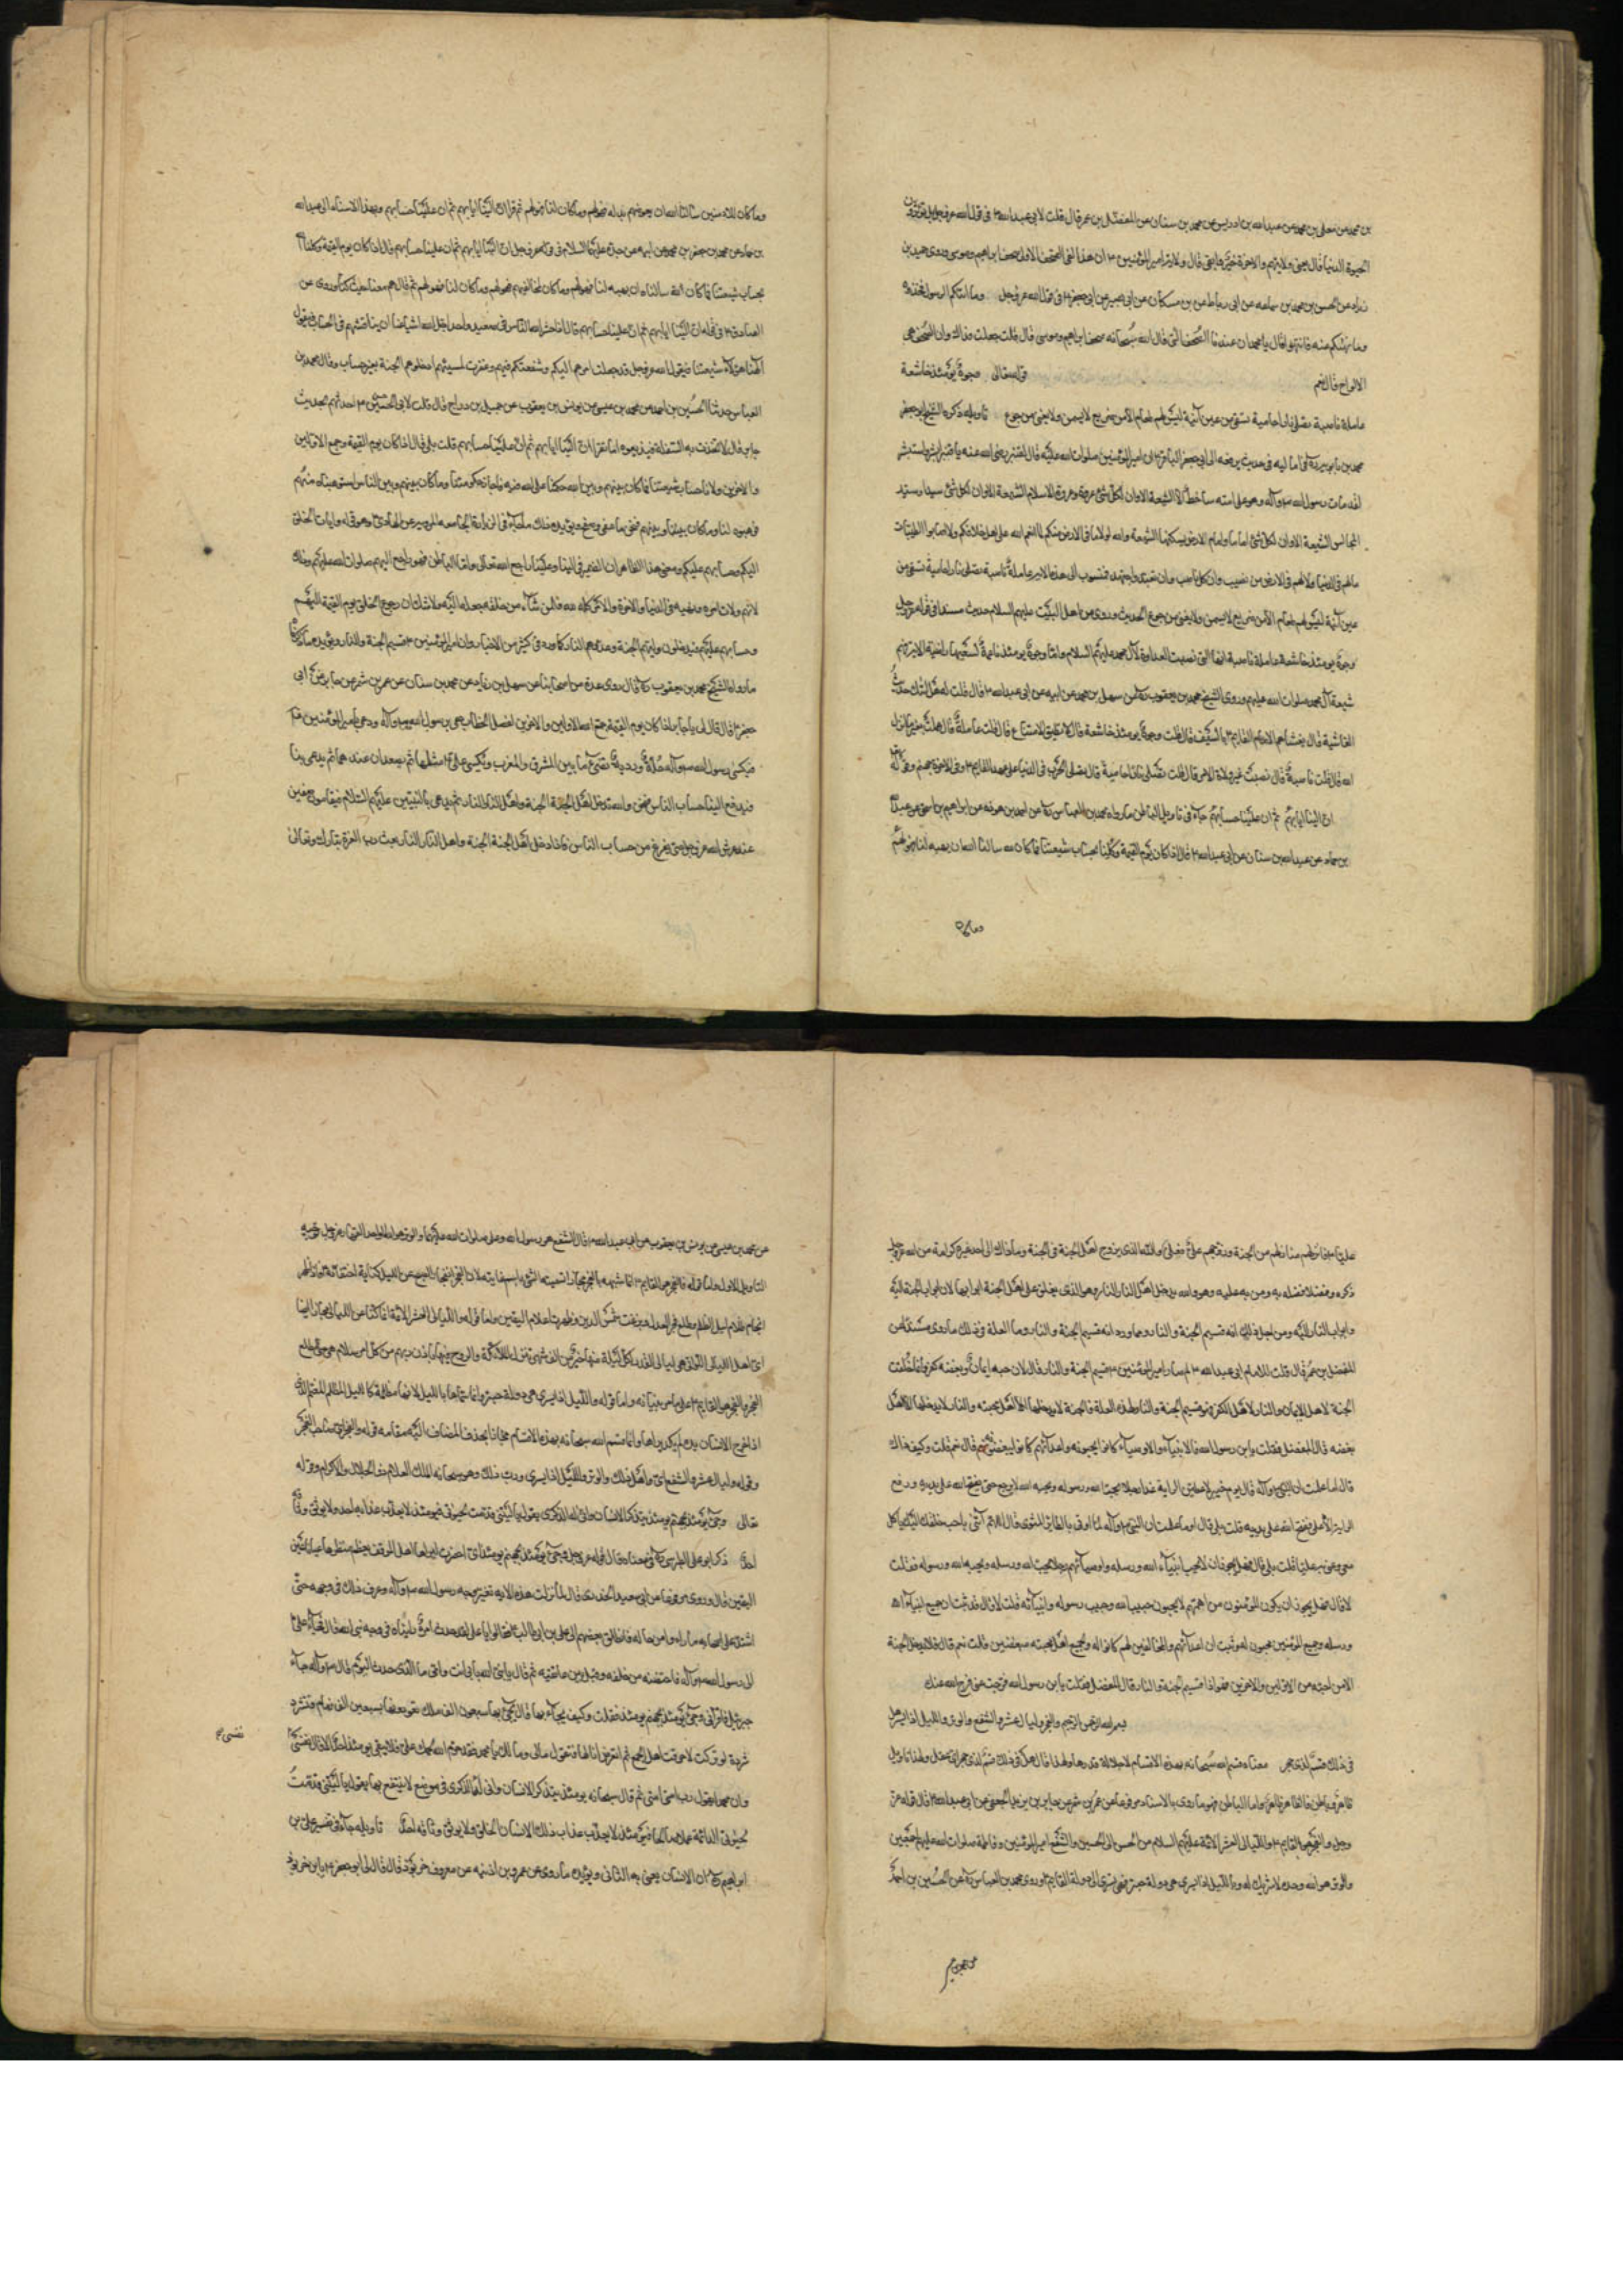 بن محمد عن معلى بن محمد عن عبدالله بن ادريس عن محمد بن سنان عن المفضل بن عمر قال قلت لابى عبدالله ع فى قول الله عز وجل بل تؤثرون
الحيوة الدنيا قال يعنى ولايتهم والاخرة خير وابقى قال ولاية امير المؤمنين ع ان هذا لفى الصحف الاولى صحف ابراهيم وموسى وروى حميد بن
زياد عن الحسن بن محمد بن سماعه عن ابن رباط عن بن مسكان عن ابى بصير عن ابى جعفر ع فى قول الله عز وجل وما اتيكم الرسول فخذوه
وما نهيكم عنه فانتهوا قال يا محمد ان عندنا الصحف التى قال الله سبحانه صحف ابراهيم وموسى قال قلت جعلت فداك وان الصحف هى
الالواح قال نعم قوله تعالى وجوه يومئذ خاشعة
عاملة ناصبة تصلى نارا حامية تسقى من عين آنية ليس لهم طعام الا من ضريع لا يسمن ولا يغنى من جوع تاويله ذكره الشيخ ابو جعفر
محمد بن بابويه ره فى اماليه فى حديث يرفعه الى ابى جعفر الباقر ع ان امير المؤمنين صلوات الله عليه قال لقنبر رضى الله عنه يا قنبر ابشر واستبشر
لقد مات رسول الله ص وآله وهو على امته ساخط الا الشيعة الا وان لكل شئ عروة وعروة الاسلام الشيعة الا وان لكل شئ سيدا وسيد
المجالس الشيعة الا وان لكل شئ اماما وامام الارض تسكنها الشيعة والله لولا ما فى الارض منكم لما انعم الله على اهل خلافكم ولا اصابوا الطيبات
ما لهم فى الدنيا ولا لهم فى الاخرة من نصيب وان كل ناصب وان تعبد واجتهد فمنسوب الى هذه الاية عاملة ناصبة تصلى نارا حامية تسقى من
عين آنية ليس لهم طعام الا من ضريع لا يسمن ولا يغنى من جوع الحديث وروى عن اهل البيت عليهم السلام حديث مسندا فى قوله عز وجل
وجوه يومئذ خاشعة عاملة ناصبة انها التى نصبت العداوة لآل محمد عليهم السلام واما وجوه يومئذ ناعمة لسعيها راضية فهم
شيعة آل محمد صلوات الله عليهم وروى الشيخ محمد بن يعقوب ره عن سهل بن محمد عن ابيه عن ابى عبدالله ع قال قلت له هل اتيك حديث
الغاشية قال يغشاهم الامام القايم ع بالسيف قال قلت وجوه يومئذ خاشعة قال لا تطيق الامتناع قال قلت عاملة قال عملت بغير ما انزل
الله قال قلت ناصبة قال نصبت غير ولاة الامر قال قلت تصلى نارا حامية قال تصلى الحرب فى الدنيا على عهد القايم ع وفى الاخرة جهنم وقوله تعالى
ان الينا ايابهم ثم ان علينا حسابهم جاء فى تاويل الباطن ما رواه محمد بن العباس ره عن احمد بن هوذه عن ابراهيم بن اسحق عن عبدالله
بن حماد عن عبدالله بن سنان عن ابى عبدالله ع قال اذا كان يوم القيمة وكلنا بحساب شيعتنا فما كان لله سالنا الله ان يهبه لنا فهو لهم
وما كان
وما كان للادميين سالنا الله ان يعوضهم بدله فهو لهم وما كان لنا فهو لهم ثم قرا ان الينا ايابهم ثم ان علينا حسابهم وبهذا الاسناد الى عبدالله
بن حماد عن محمد بن جعفر بن محمد عن ابيه عن جده عليهم السلام فى قوله عز وجل ان الينا ايابهم ثم ان علينا حسابهم قال اذا كان يوم القيمة وكلنا الله
بحساب شيعتنا فما كان لله سالناه ان يهبه لنا فهو لهم وما كان لمخالفيهم فهو لهم وما كان لنا فهو لهم ثم قال هم معنا حيث كنا وروى عن
الصادق ع فى قوله ان الينا ايابهم ثم ان علينا حسابهم قال اذا حشر الله الناس فى صعيد واحد اجل الله اشياعنا ان يناقشهم فى الحساب فنقول
الهنا هؤلاء شيعتنا فيقول الله عز وجل قد جعلت امرهم اليكم وشفعتكم فيهم وغفرت لمسيئهم ادخلوهم الجنة بغير حساب وقال محمد بن
العباس حدثنا الحسين بن احمد عن محمد بن عيسى عن يونس بن يعقوب عن جميل بن دراج قال قلت لابى الحسن ع احدثهم بحديث
جابر قال لا تحدث به السفلة فيذيعوه اما تقرا ان الينا ايابهم ثم ان علينا حسابهم قلت بلى قال اذا كان يوم القيمة وجمع الله الاولين
والاخرين ولانا حساب شيعتنا فما كان بينهم وبين الله حكمنا على الله فيه فاجاز حكومتنا وما كان بينهم وبين الناس استوهبناه منهم
فوهبوه لنا وما كان بيننا وبينهم فنحن احق من عفى وصفح ويؤيد ذلك ما جاء فى الزيارة الجامعه المروية عن الهادى ع وهو قوله واياب الخلق
اليكم وحسابهم عليكم ومعنى هذا الظاهر ان الضمير فى الينا وعلينا راجع الى الله تعالى واما الباطن فهو راجع اليهم صلوات الله عليهم وذلك
لانهم ولاة امره ونهيه فى الدنيا والاخرة والامر كله لله فالى من شاء من خلقه جعله اليه ولا شك ان رجوع الخلق يوم القيمة اليهم
وحسابهم عليهم فيدخلون وليهم الجنة وعدوهم النار كما ورد فى كثير من الاخبار وان امير المؤمنين ع قسيم الجنة والنار ويؤيد ما ذكرناه
ما رواه الشيخ محمد بن يعقوب ره قال روى عدة من اصحابنا عن سهل بن زياد عن محمد بن سنان عن عمرو بن شمر عن جابر عن ابى
جعفر ع قال قال يا جابر اذا كان يوم القيمة جمع الله الاولين والاخرين لفصل الخطاب دعى رسول الله ص وآله ودعى امير المؤمنين ع
فيكسى رسول الله ص وآله حلة وردية تضئ ما بين المشرق والمغرب ويكسى على ع مثلها ثم يصعدان عندها ثم يدعى بنا
فيدفع الينا حساب الناس فنحن والله ندخل اهل الجنة الجنة واهل النار النار ثم يدعى بالنبيين عليهم السلام فيقامون صفين
عند عرش الله عز وجل حتى نفرغ من حساب الناس فاذا دخل اهل الجنة الجنة واهل النار النار بعث رب العزة تبارك وتعالى
عليا ع فانزلهم منازلهم من الجنة وزوجهم فعلى والله الذى يزوج اهل الجنة فى الجنة وما ذاك الى احد غيره كرامة من الله عز وجل
ذكره وفضلا فضله به ومن به عليه وهو والله يدخل اهل النار النار وهو الذى يغلق على اهل الجنة ابوابها لان ابواب الجنة اليه
وابواب النار اليه ومن اجل ذلك انه قسيم الجنة والنار ومما ورد انه قسيم الجنة والنار وما العلة فى ذلك ما روى مسندا عن
المفضل بن عمر قال قلت للامام ابى عبدالله ع لم صار امير المؤمنين ع قسيم الجنة والنار قال لان حبه ايمان وبغضه كفر وانما خلقت
الجنة لاهل الايمان والنار لاهل الكفر فهو قسيم الجنة والنار لهذه العلة فالجنة لا يدخلها الا اهل محبته والنار لا يدخلها الا اهل
بغضه قال المفضل فقلت يا بن رسول الله فالانبياء والاوصياء كانوا يحبونه واعداؤهم كانوا يبغضونه قال نعم قلت وكيف ذاك
قال اما علمت ان النبى ص وآله قال يوم خيبر لاعطين الراية غدا رجلا يحب الله ورسوله ويحبه الله ورسوله لا يرجع حتى يفتح الله على يديه ودفع
الراية الى على ففتح الله على يديه قلت بلى قال اوما علمت ان النبى ص وآله لما اوتى بالطائر المشوى قال اللهم ائتنى باحب خلقك اليك ياكل
معى وعنى به عليا قلت بلى قال فهل يجوز ان لا يحب انبياء الله ورسله واوصياؤهم رجلا يحب الله ورسوله ويحبه الله ورسوله فقلت
لا قال فهل يجوز ان يكون المؤمنون من اممهم لا يحبون حبيب الله وحبيب رسوله وانبيائه قلت لا قال فقد ثبت ان جميع انبياء الله
ورسله وجميع المؤمنين محبون له وثبت ان اعدائهم والمخالفين لهم كانوا له ولجميع اهل محبته مبغضين قلت نعم قال فلا يدخل الجنة
الا من احبه من الاولين والاخرين فهو اذا قسيم الجنة والنار قال المفضل فقلت يا بن رسول الله فرجت عنى فرج الله عنك
بسم الله الرحمن الرحيم والفجر وليال عشر والشفع والوتر والليل اذا يسر هل
فى ذلك قسم لذى حجر معناه قسم الله سبحانه بهذه الاقسام لاجل جلالة قدرها ولهذا قال هل فى ذلك قسم لذى حجر اى عقل ولهذا تاويل
ظاهر وباطن فالظاهر ظاهر واما الباطن فهو ما روى بالاسناد مرفوعا عن عمرو بن شمر عن جابر بن يزيد الجعفى عن ابى عبدالله ع قال قوله عز
وجل والفجر هو القايم ع والليالى العشر الائمة عليهم السلام من الحسن الى الحسن والشفع امير المؤمنين وفاطمة صلوات الله عليهم اجمعين
والوتر هو الله وحده لا شريك له والليل اذا يسر هى دولة حبتر فهى تسرى الى دولة القايم ع وروى محمد بن العباس ره عن الحسين بن احمد
عن محمد بن
عن محمد بن عيسى عن يونس بن يعقوب عن ابى عبدالله ع قال الشفع هو رسول الله وعلى صلوات الله عليهما والوتر هو الله الواحد القهار عز وجل
التاويل الاول واما قوله فالفجر هو القايم ع انما شبهه بالفجر مجازا
ظلام ليل الظلم وطلع فجر العدل وبزغت شمس الدين وظهرت اعلام اليقين واما قوله والليالى العشر الائمة
الفجر والفجر هو القايم ع على ما مر بيانه واما قوله والليل اذا يسر هى دولة حبتر
وقوله وليال عشر والشفع اى واهل ذلك والوتر والليل اذا يسر ورب ذلك وهو سبحانه الملك العلام ذو الجلال والاكرام وقوله
تعالى وجئ يومئذ بجهنم يومئذ يتذكر الانسان وانى له الذكرى يقول يا ليتنى قدمت لحيوتى فيومئذ لا يعذب عذابه احد ولا يوثق وثاقه
احد ذكر ابو على الطبرسى ره فى معناه قال قوله عز وجل وجئ يومئذ بجهنم يومئذ اى احضرت
اليقين قال وروى مرفوعا عن ابى سعيد الخدرى قال لما نزلت هذه الاية تغير وجه رسول الله ص وآله وعرف ذلك فى وجهه حتى
اشتد على اصحابه ما راوا من حاله فانطلق بعضهم الى على بن ابى طالب ع فقالوا يا على لقد حدث امر رايناه فى وجه نبى الله قال فجاء على ع
الى رسول الله ص وآله فاحتضنه من خلفه وقبل بين عاتقيه ثم قال يا نبى الله بابى انت وامى ما الذى حدث اليوم قال ص وآله جاء
جبرئيل فاقرأنى وجئ يومئذ بجهنم يومئذ فقلت وكيف يجاء بها قال يجئ بها سبعون الف ملك يقودونها بسبعين الف زمام فتشرد
شردة لو تركت لاحرقت اهل الجمع ثم اتعرض انا لها فتقول مالى ومالك يا محمد فقد حرم الله لحمك على فلا يبقى يومئذ احد الا قال نفسى
نفسى
وان محمدا يقول رب امتى امتى ثم قال سبحانه يومئذ يتذكر الانسان وانى له الذكرى فى موضع لا ينتفع بها يقول يا ليتنى قدمت
لحيوتى الدائمة عملا صالحا فيومئذ لا يعذب عذاب ذلك الانسان الخلق ولا يوثق وثاقه احد تاويله جاء فى تفسير على بن
ابراهيم ره ان الانسان يعنى به الثانى ويؤيده ما روى عن عمرو بن اذينه عن معروف بن خربوذ قال قال لى ابو جعفر ع يا بن خربوذ